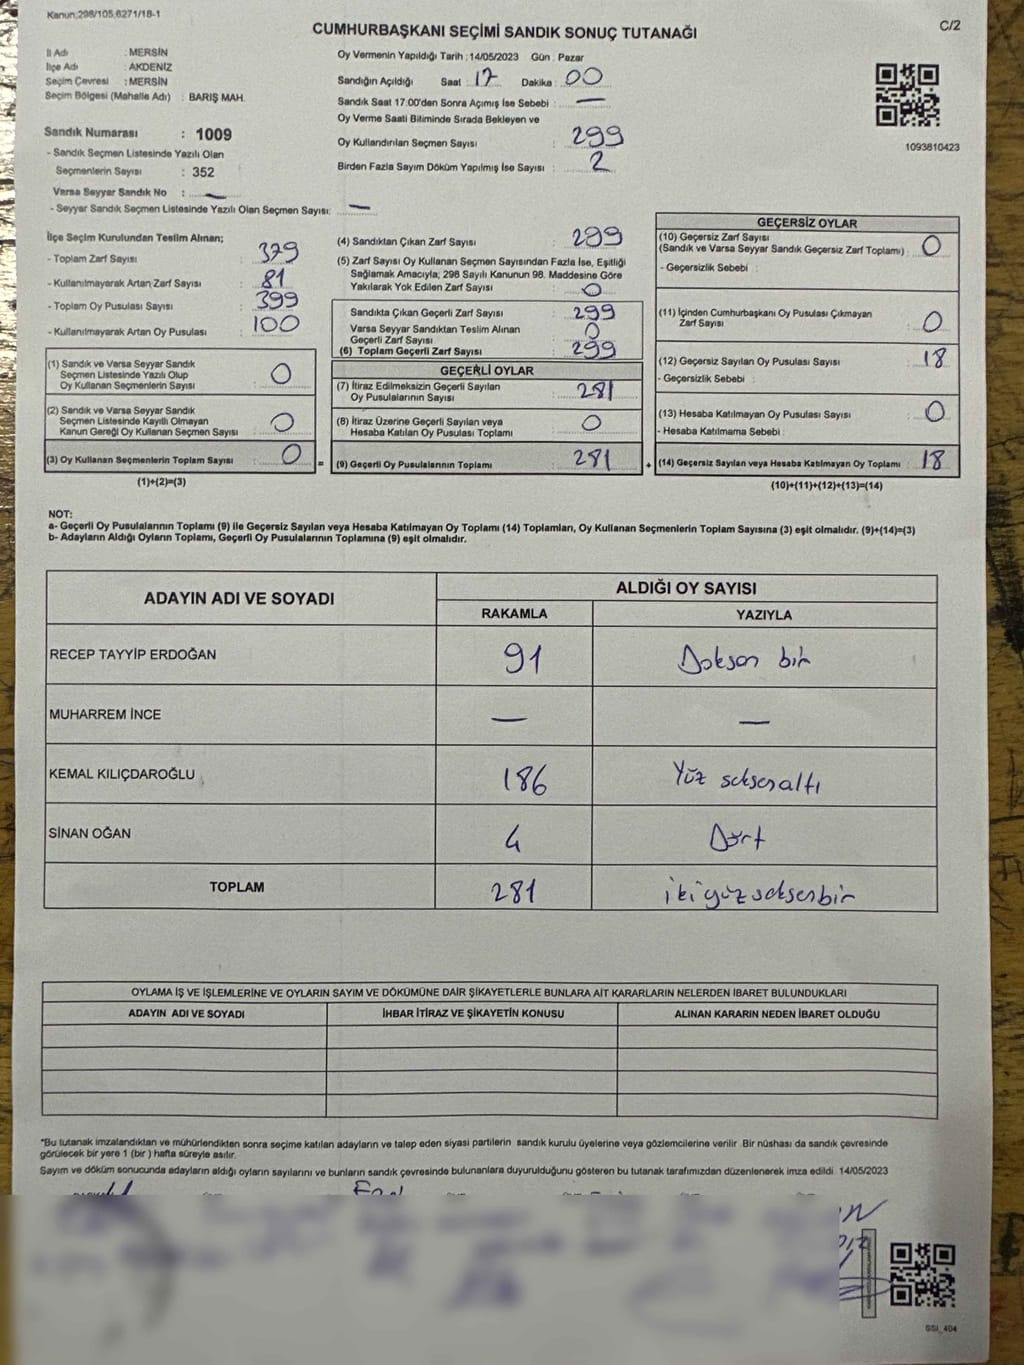 Kanun:298/105,6271/18-1
C/2
CUMHURBAŞKANI SEÇİMİ SANDIK SONUÇ TUTANAĞI
İl Adı : MERSİN
İlçe Adı : AKDENİZ
Seçim Çevresi : MERSİN
Seçim Bölgesi (Mahalle Adı) : BARIŞ MAH.
Sandık Numarası : 1009
- Sandık Seçmen Listesinde Yazılı Olan
Seçmenlerin Sayısı : 352
Varsa Seyyar Sandık No : —
- Seyyar Sandık Seçmen Listesinde Yazılı Olan Seçmen Sayısı: —
Oy Vermenin Yapıldığı Tarih : 14/05/2023 Gün : Pazar
Sandığın Açıldığı Saat : 17 Dakika : 00
Sandık Saat 17:00'den Sonra Açımış İse Sebebi : —
Oy Verme Saati Bitiminde Sırada Bekleyen ve
Oy Kullandırılan Seçmen Sayısı : 299
Birden Fazla Sayım Döküm Yapılmış İse Sayısı : 2
1093810423
İlçe Seçim Kurulundan Teslim Alınan;
- Toplam Zarf Sayısı : 379
- Kullanılmayarak Artan Zarf Sayısı : 81
- Toplam Oy Pusulası Sayısı : 399
- Kullanılmayarak Artan Oy Pusulası : 100
(1) Sandık ve Varsa Seyyar Sandık
Seçmen Listesinde Yazılı Olup
Oy Kullanan Seçmenlerin Sayısı : 0
(2) Sandık ve Varsa Seyyar Sandık
Seçmen Listesinde Kayıtlı Olmayan
Kanun Gereği Oy Kullanan Seçmen Sayısı : 0
(3) Oy Kullanan Seçmenlerin Toplam Sayısı : 0
(1)+(2)=(3)
(4) Sandıktan Çıkan Zarf Sayısı : 299
(5) Zarf Sayısı Oy Kullanan Seçmen Sayısından Fazla İse, Eşitliği
Sağlamak Amacıyla; 298 Sayılı Kanunun 98. Maddesine Göre
Yakılarak Yok Edilen Zarf Sayısı : 0
Sandıkta Çıkan Geçerli Zarf Sayısı : 299
Varsa Seyyar Sandıktan Teslim Alınan
Geçerli Zarf Sayısı : 0
(6) Toplam Geçerli Zarf Sayısı : 299
GEÇERLİ OYLAR
(7) İtiraz Edilmeksizin Geçerli Sayılan
Oy Pusulalarının Sayısı : 281
(8) İtiraz Üzerine Geçerli Sayılan veya
Hesaba Katılan Oy Pusulası Toplamı : 0
= (9) Geçerli Oy Pusulalarının Toplamı : 281 +
GEÇERSİZ OYLAR
(10) Geçersiz Zarf Sayısı
(Sandık ve Varsa Seyyar Sandık Geçersiz Zarf Toplamı) : 0
- Geçersizlik Sebebi :
(11) İçinden Cumhurbaşkanı Oy Pusulası Çıkmayan
Zarf Sayısı : 0
(12) Geçersiz Sayılan Oy Pusulası Sayısı : 18
- Geçersizlik Sebebi :
(13) Hesaba Katılmayan Oy Pusulası Sayısı : 0
- Hesaba Katılmama Sebebi :
(14) Geçersiz Sayılan veya Hesaba Katılmayan Oy Toplamı : 18
(10)+(11)+(12)+(13)=(14)
NOT:
a- Geçerli Oy Pusulalarının Toplamı (9) ile Geçersiz Sayılan veya Hesaba Katılmayan Oy Toplamı (14) Toplamları, Oy Kullanan Seçmenlerin Toplam Sayısına (3) eşit olmalıdır. (9)+(14)=(3)
b- Adayların Aldığı Oyların Toplamı, Geçerli Oy Pusulalarının Toplamına (9) eşit olmalıdır.
ADAYIN ADI VE SOYADI ALDIĞI OY SAYISI
RAKAMLA YAZIYLA
RECEP TAYYİP ERDOĞAN 91 Doksan bir
MUHARREM İNCE — —
KEMAL KILIÇDAROĞLU 186 Yüz seksenaltı
SİNAN OĞAN 4 Dört
TOPLAM 281 ikiyüzseksenbir
OYLAMA İŞ VE İŞLEMLERİNE VE OYLARIN SAYIM VE DÖKÜMÜNE DAİR ŞİKAYETLERLE BUNLARA AİT KARARLARIN NELERDEN İBARET BULUNDUKLARI
ADAYIN ADI VE SOYADI İHBAR İTİRAZ VE ŞİKAYETİN KONUSU ALINAN KARARIN NEDEN İBARET OLDUĞU
*Bu tutanak imzalandıktan ve mühürlendikten sonra seçime katılan adayların ve talep eden siyasi partilerin sandık kurulu üyelerine veya gözlemcilerine verilir. Bir nüshası da sandık çevresinde
görülecek bir yere 1 (bir) hafta süreyle asılır.
Sayım ve döküm sonucunda adayların aldığı oyların sayılarını ve bunların sandık çevresinde bulunanlara duyurulduğunu gösteren bu tutanak tarafımızdan düzenlenerek imza edildi. 14/05/2023
SSI_404